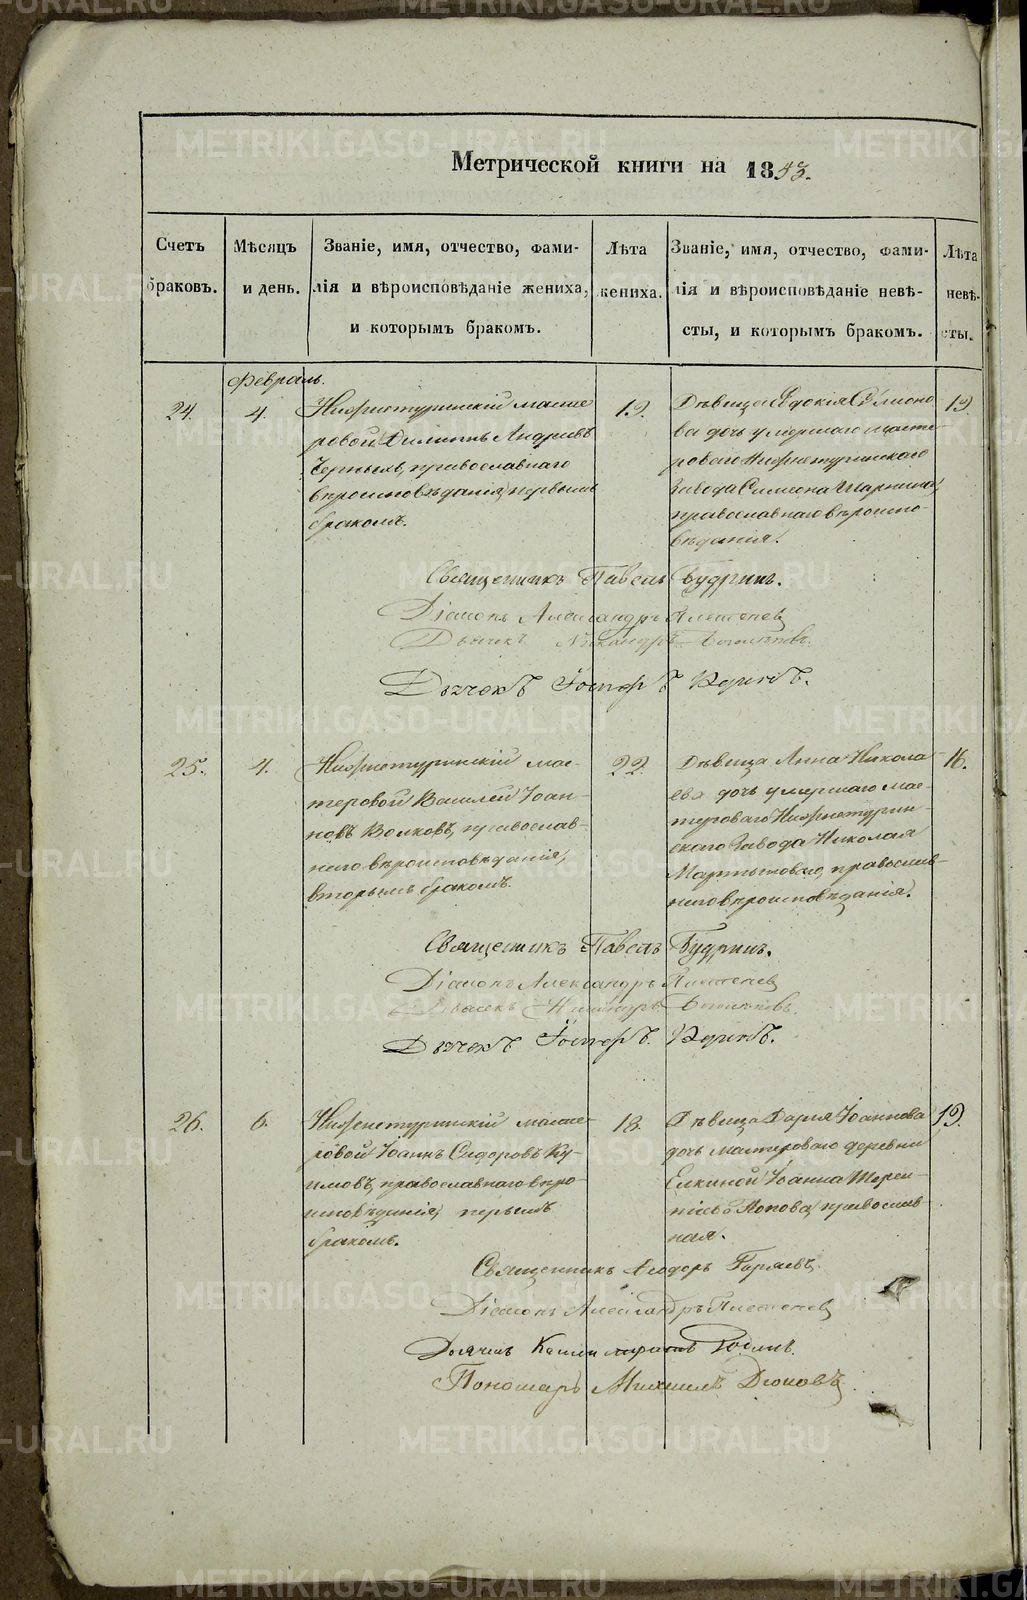 Метрической книги на 1853.
Счетъ браковъ.
Мѣсяцъ и день.
Званіе, имя, отчество, фами-
лія и вѣроисповѣданіе жениха,
и которымъ бракомъ.
Лѣта
жениха.
Званіе, имя, отчество, фами-
лія и вѣроисповѣданіе невѣ-
сты, и которымъ бракомъ.
Лѣта
невѣ-
сты.
Февраль.
24.
4.
Нижнетуринскій масте
ровой Филиппъ Андреевъ
Черныхъ, православнаго
вѣроисповѣданія, первымъ
бракомъ.
19.
Дѣвица Евдокія Симеоно
ва дочь умершаго масте-
роваго Нижнетуринскаго
Завода Симеона
православнаго вѣроиспо-
вѣданія.
19.
Священникъ Павелъ Будринъ.
Діаконъ Александръ Плетенев
Дьячекъ
Дьячекъ Іосифъ
25.
4.
Нижнетуринскій мас-
теровой Василей Іоан-
новъ Волковъ, православ-
наго вѣроисповѣданія,
вторымъ бракомъ.
22.
Дѣвица Анна Никола
ева дочь умершаго мас-
тероваго Нижнетурин-
скаго Завода Николая
Мартынова, православ-
наго вѣроисповѣданія.
16.
Священникъ Павелъ Будринъ.
Діаконъ Александръ Плетенев
Дьячекъ
Дьячекъ Іосифъ
26.
6.
Нижнетуринскій масте-
ровой Іоаннъ Сидоровъ Ку-
имовъ, православнаго вѣро
исповѣданія, первымъ
бракомъ.
18.
Дѣвица Дарья Іоаннова
дочь мастероваго деревни
Елкиной Іоанна Терен-
тіева Попова, православ
ная.
19.
Священникъ Ѳеодоръ Горяевъ.
Діаконъ Александръ Плетенев
Дьячекъ
Пономарь Михаилъ
METRIKI.GASO-URAL.RU